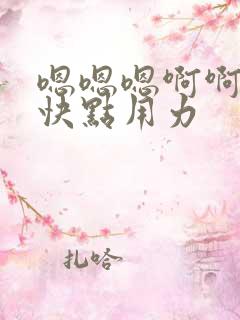 嗯嗯嗯啊啊
快點用力
扎哈